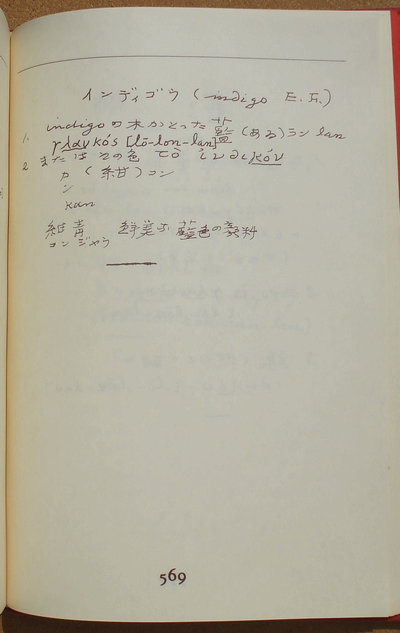 インディゴウ (indigo E. F.)
1. indigoの木からとった藍 (ある) ラン lan
γλαυκós [lō-lon-lan]
2 または その色 τὸ ἰνδικόν
カ (紺) コン
ン
kan
紺青 鮮美ナ 藍色の
コンジャウ
569